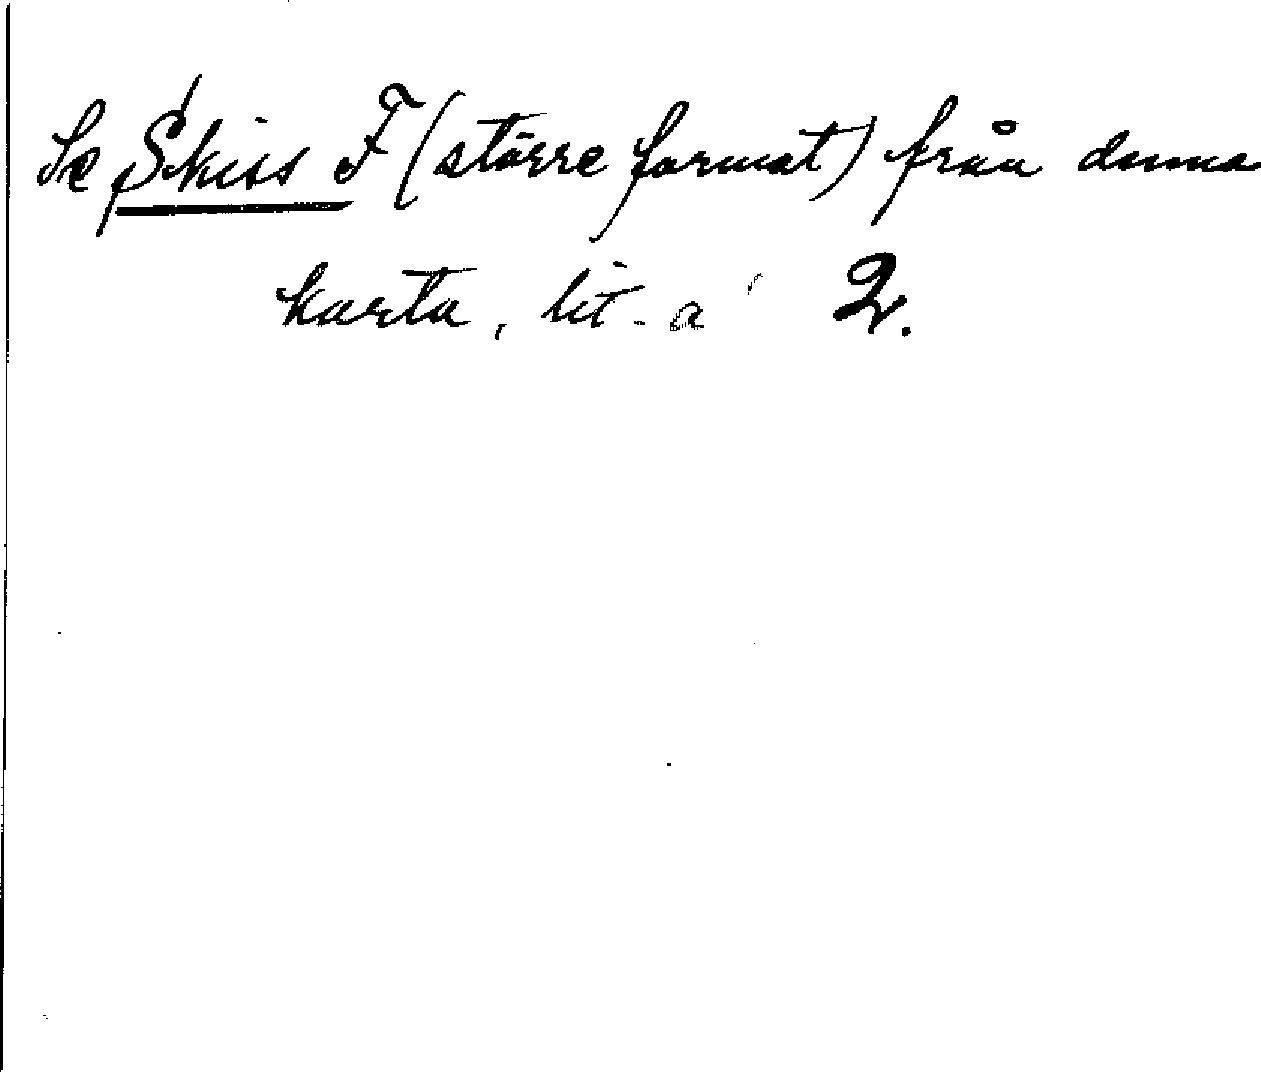 Se Skiss F (större format) från denna
karta, lit. a 2.